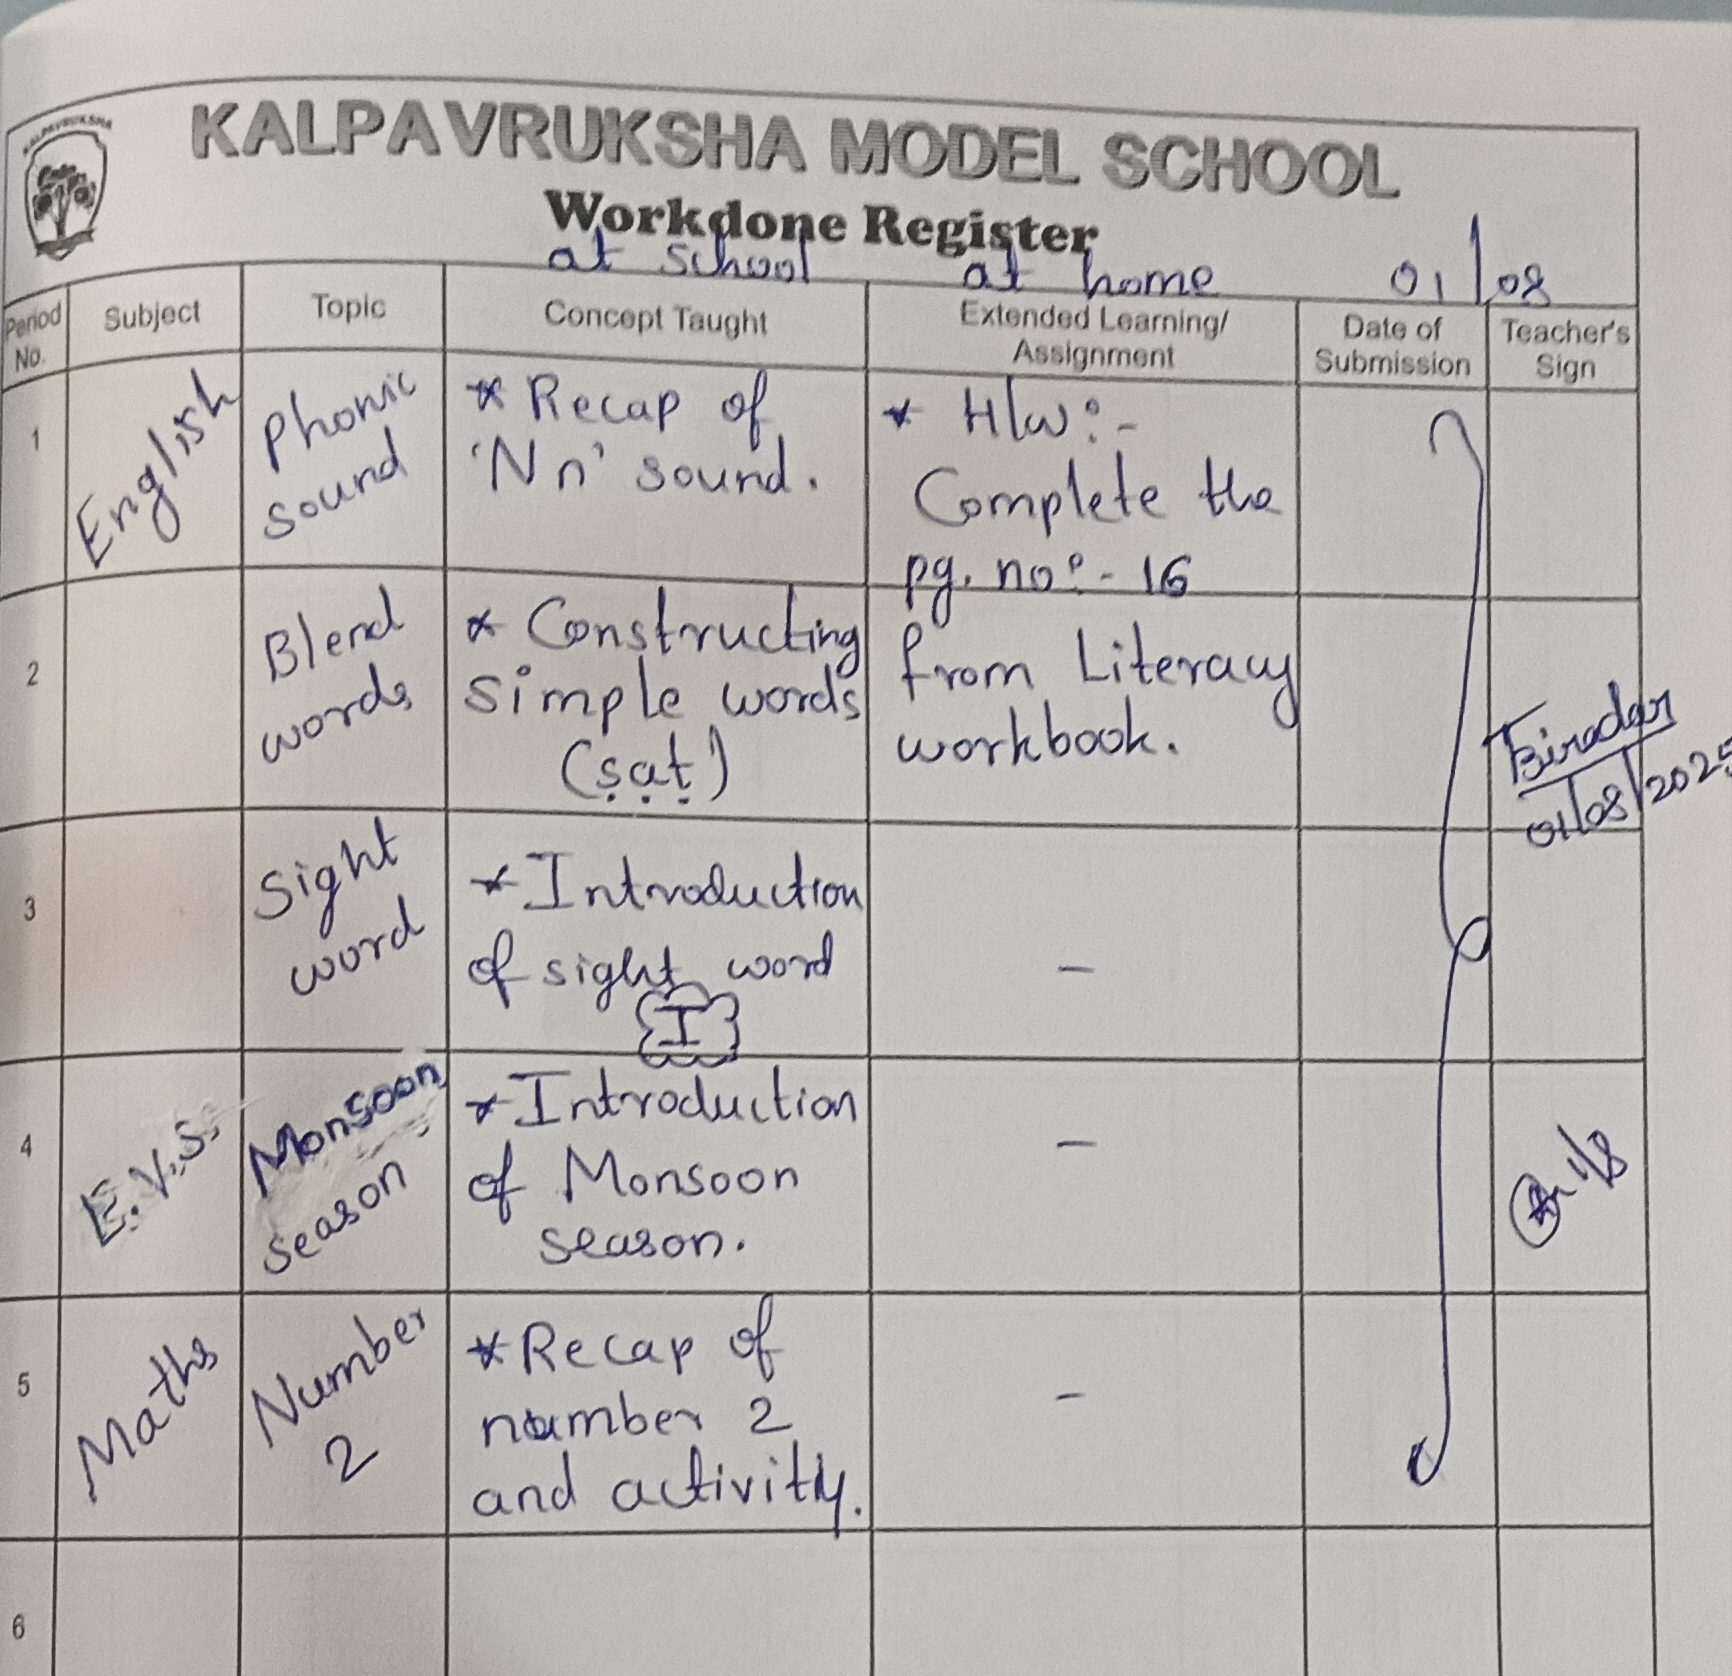 KALPAVRUKSHA
KALPAVRUKSHA MODEL SCHOOL
Workdone Register
at school at home 01/08
Period No. Subject Topic Concept Taught Extended Learning/ Assignment Date of Submission Teacher's Sign
1 English Phonic sound * Recap of 'Nn' sound. * H/w:-
Complete the
pg. no:- 16
from Literacy
workbook.
2 Blend words * Constructing simple words (sat)
Biradar
01/08/2025
3 Sight word * Introduction of sight word I -
4 E.V.S. Monsoon season * Introduction of Monsoon season. - 1/8
5 Maths Number 2 * Recap of number 2 and activity. -
6